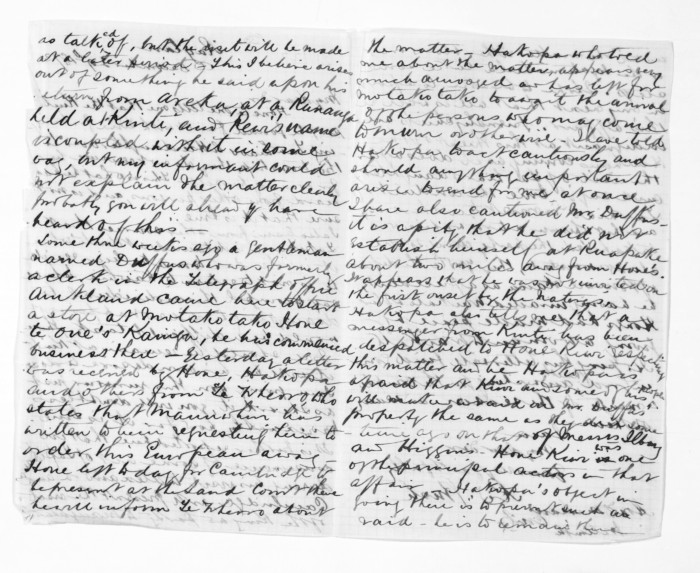 so talked of, but the visit will be made
at a later period - This I believe arises
out of something he said upon his
return from Areka, at a Runanga
held at Kuiti, and Rewi's name
is coupled with it in some
way, but my informant could
not explain the matter clearly
probably you will already have
heard of this -
Some three weeks ago a gentleman
named Duffus who was formerly
a clerk in the Telegraph Office
Auckland came here to start
a store at Motakotako Hone
te One's Kainga, he has commenced
business there - Yesterday a letter
was received by Hone, Hakopa
and others from Te Wheoro who
states that Manuwhiri has
written to him requesting him to
order this European away
Hone left to day for Cambridge to
be present at the Land Court there
he will inform Te Wheoro about
the matter - Hakopa who told
me about the matter, appears very
much annoyed and has left for
Motakotako to await the arrival
of the persons who may come
to turn or otherwise - I have told
Hakopa to act cautiously and
should anything important
arise to send for me at once
I have also cautioned Mr. Duffus -
it is a pity that he did not
establish himself at Ruapuke
about two miles away from Hone's.
It appears that he was not invited on
the first onset by the natives
Hakopa also tells me that a
messenger from Kuiti has been
despatched to Hone Kiwi respecting
this matter and he Hakopa is
afraid that Kiwi and some of his people
will make a raid on Mr. Duffus's
property the same as they did some
time ago on that of Messrs
and Higgins - Hone Kiwi was one
of the principal actors in that
affair Hakopa's object in
going there is to prevent such a
raid - he is to remain there